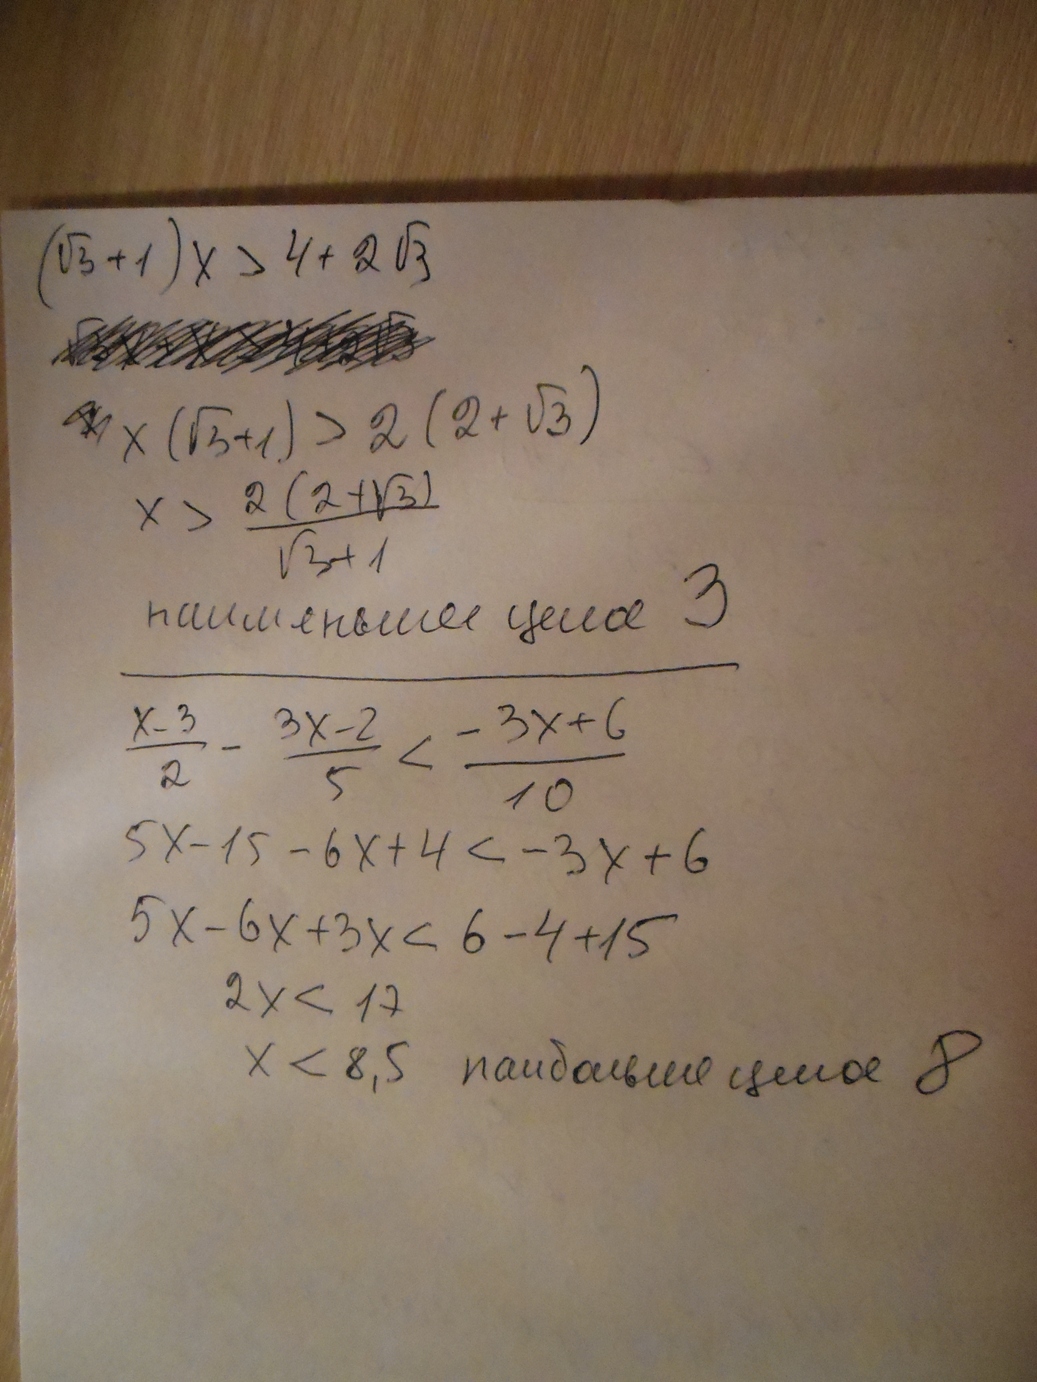 (√3+1)x > 4+2√3
x(√3+1) > 2(2+√3)
x > 2(2+√3) / √3+1
наименьшее целое 3
x-3 / 2 - 3x-2 / 5 < -3x+6 / 10
5x-15-6x+4 < -3x+6
5x-6x+3x < 6-4+15
2x < 17
x < 8,5 наибольшее целое 8